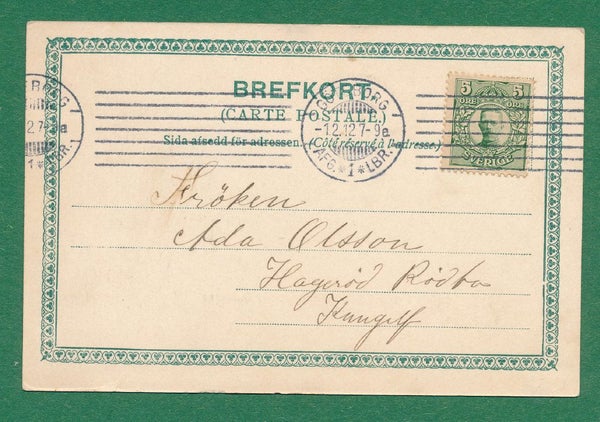 BREFKORT
(CARTE POSTALE.)
Sida afsedd för adressen. (Côté réservé à l'adresse.)
5 5
ÖRE ÖRE
SVERIGE
GÖTEBORG 1
-1.2.12 7-9a
AFG. * 1 * LBR.
Fröken
Ada Olsson
Hageröd Rödbo
Kungelf